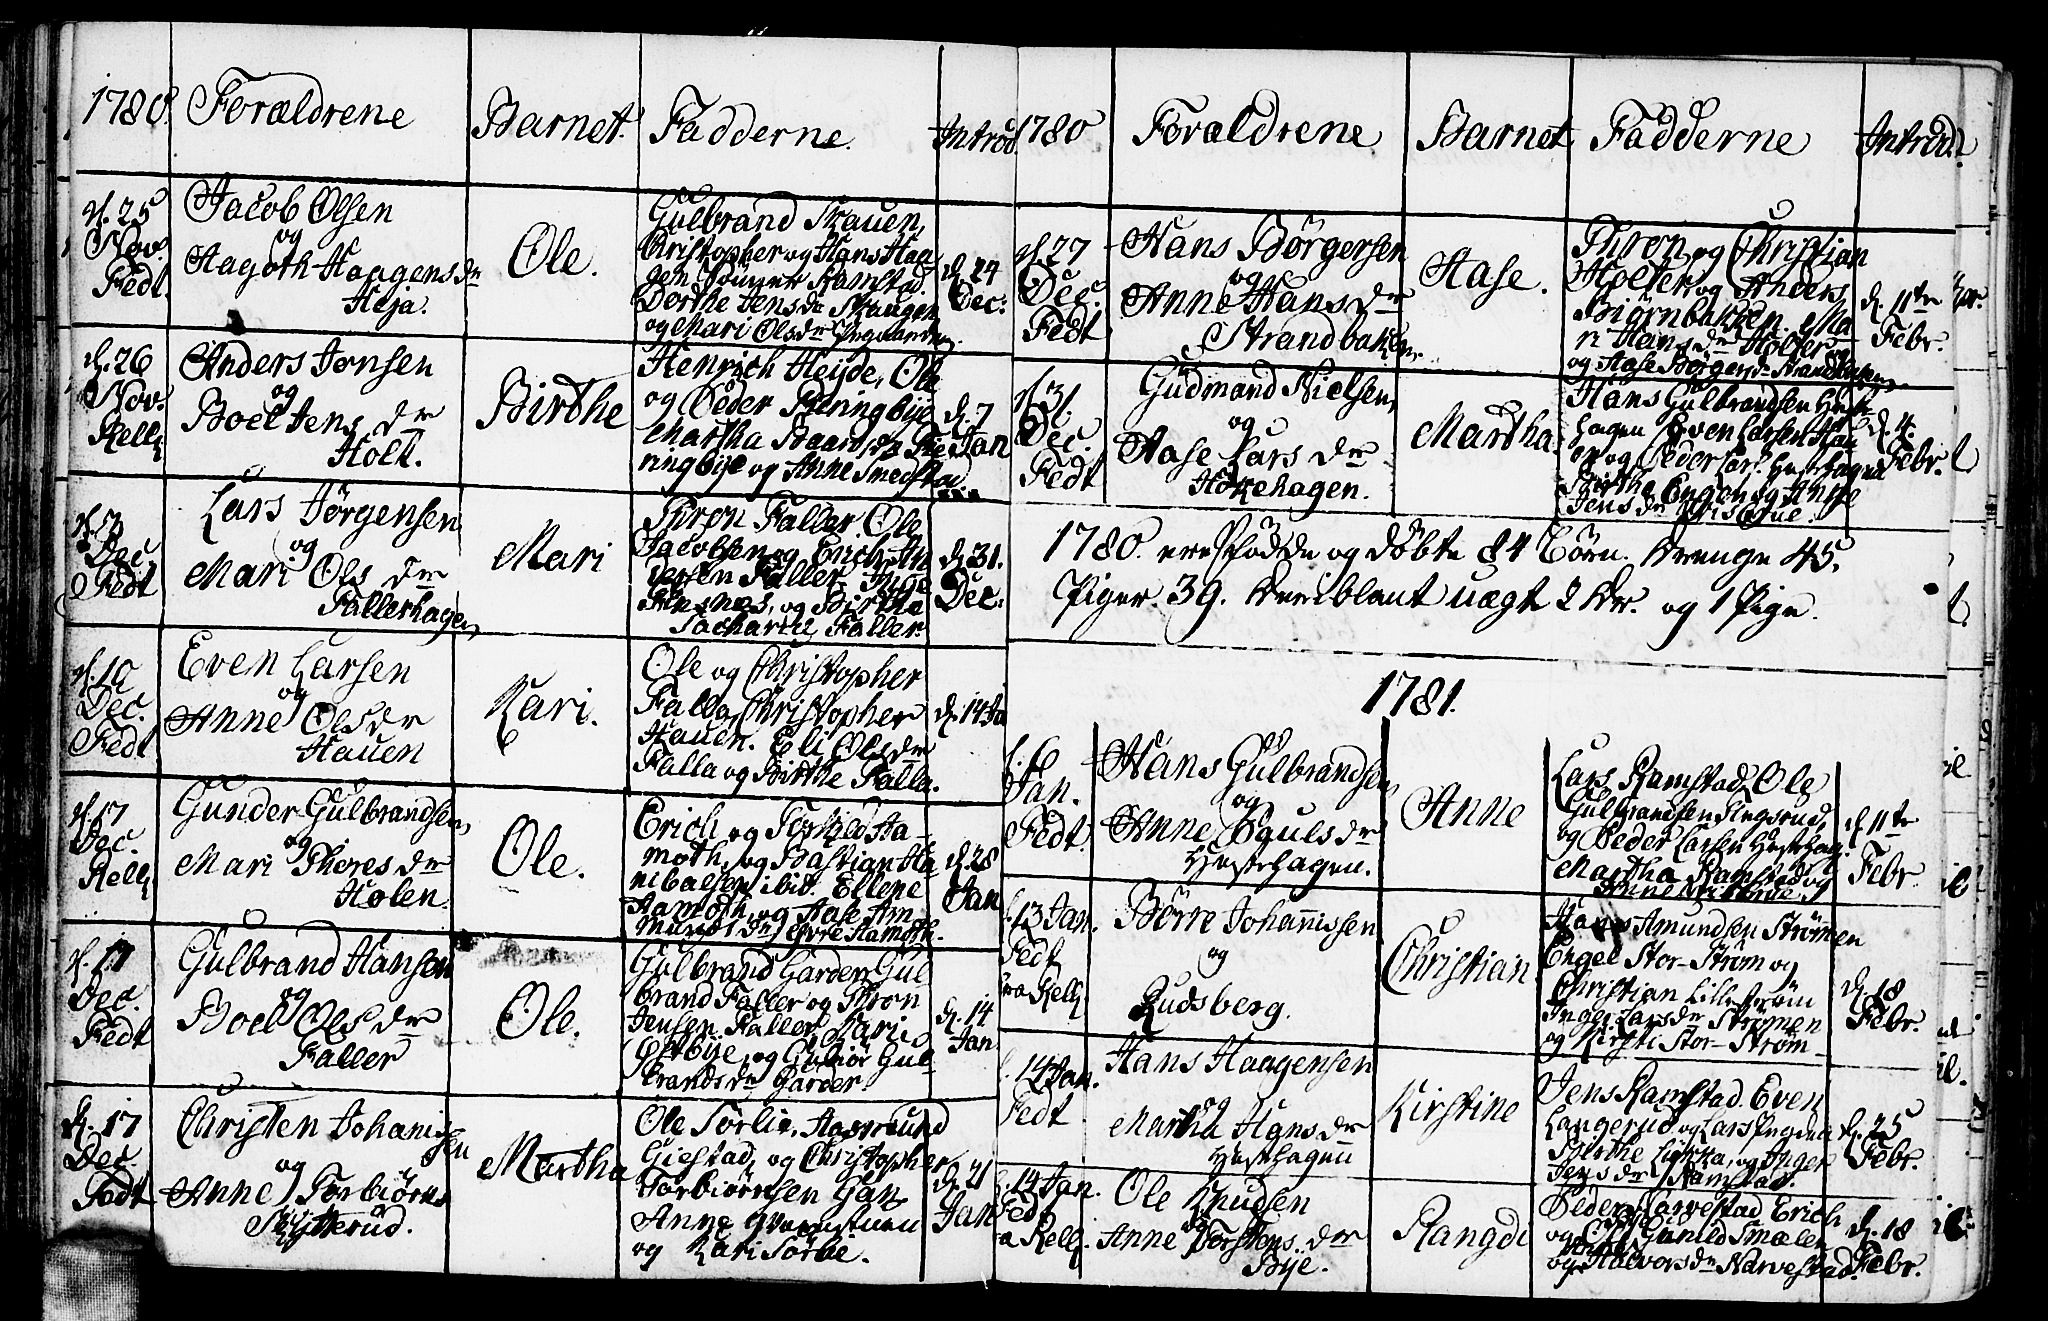 1780. Forældrene Barnet. Fadderne. Introd.
d. 25 Nov. Fedt
Jacob Olsen
og
Aagoth Haagensdr
Heja.
Ole.
Gulbrand Skauen,
Christopher og Hans Haa
gen Ramstad.
Dorthe Jensdr Skaugen
og Mari Olsdr
d. 24
Dec:
d. 26
Nov.
Relli
Anders Jonsen
og
Boel Jens dr
Holt.
Birthe
Henrich Heyde, Ole
og Peder Pieringbye
Martha
ringbye og Anne Smedstad.
d. 7
Jan
d. 3
Dec.
Fedt
Lars Jørgensen
og
Mari Ols dr
Fallerhagen
Mari
Thron Faller. Ole
Jacobsen og Erich An
dersen Faller. Inge
og Birtha
Zacharie Faller.
d. 31.
Dec:
d. 10
Dec.
Fedt
Even Larsen
og
Anne Olsdr
Hauen
Kari.
Ole og Christopher
Falla, Christopher
Hauen. Eli Olsdr
Falla og Birthe Falla.
d. 14 Ja
d. 17
Dec.
Relli
Gunder Gulbrandsen,
og
Mari Thoresdr
Holen
Ole.
Erich og Torkild Aa-
moth, og Bastian Ha
nibalsen ibid. Ellene
Aamoth, og Aase Am
mundsdr Aamoth.
d. 28
Jan
d. 17
Dec.
Fedt
Gulbrand Hansen
og
Boel Ols dr
Faller
Ole.
Gulbrand Garder, Gul
brand Faller og Thron
Jensen Faller, Kari
Østbye, og Gubiør Gul-
brandsdr Garder.
d. 14
Jan
d. 17
Dec.
Fedt
Christen Johanis
sen
og
Anne Torbiørns
Skytterud.
Martha
Ole Sørlie, Aasmund
Giestad, og Christopher
Torbiørnsen Gan,
Anne
og Kari Sørlie.
d. 21
Jan
1780 Forældrene Barnet Fadderne Introd.
d. 27
Dec.
Fedt
Hans Børgersen
og
Anne Hans dr
Strandbakken
Aase.
Thron og Christian
Holter og Anders
Biørnbakken. Ma
ri Hans dr Holter
og Aase Børgersdr Strandbakken
d. 11te
Febr.
d. 31.
Dec.
Fedt
Gudmand Nielsen,
og
Aase Lars dr
Hokehagen.
Martha.
Hans Gulbrandsen Heste
hagen Even Larsen Hau
en og Peder Lars. Hestehagen
Birthe Engen og Anne
Jens dr
d. 4.
Febr.
1780. ere fødde og døbte 84 Børn. Drenge 45.
Piger. 39. Deriblant uægte 2 Dr. og 1 Pige.
1781.
d. 6
Jan.
Fedt.
Hans Gulbrandsen,
og
Anne Pouls dr
Hestehagen.
Anne
Lars Ramstad, Ole
Gulbrandsen Ringsrud,
og Peder Larsen Hestehag.
Martha Ramstad og
Anne
d 11te
Febr.
13 Jan.
Fedt
fra Relli
Børre Johannissen
og
Rudsberg.
Christian.
Hans Amundsen Strømmen
Engel Stor-Strøm og
Christian Lillestrøm
Inger Larsdr Strømen
og Kirsti Stor-Strøm
d. 18
Febr.
14 Jan.
Fedt
Hans Haagensen
og
Martha Hans dr
Hestehagen
Kirstine
Jens Ramstad. Even
Langerud og Lars
Birthe Løkka, og Inger
Jens dr Ramstad.
d. 25
Febr.
14 Jan.
Fedt
fra Relli.
Ole Knudsen
og
Anne Torstens dr
Bye.
Rangdi
Peder Narvestad Erich
og Gunild Smaler
og Halvorsdr Narvestad.
d. 18
Febr.